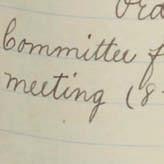 Committee f
meeting (8